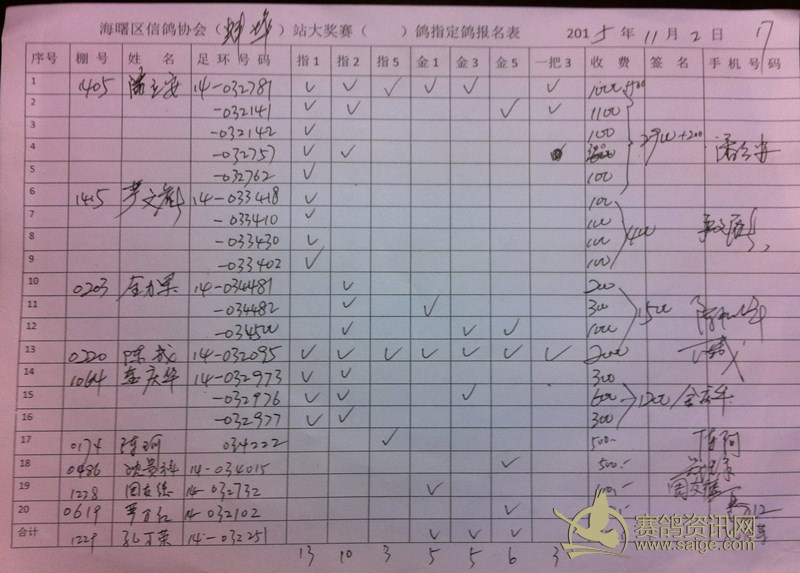 海曙区信鸽协会（蚌埠）站大奖赛（ ）鸽指定鸽报名表 2015年11月2日 7
序号 棚号 姓名 足环号码 指1 指2 指5 金1 金3 金5 一把3 收费 签名 手机号码
1 1405 14-032781 ✓ ✓ ✓ ✓ ✓ ✓
2 -032141 ✓ ✓ ✓ ✓ 1100
3 -032142 ✓ 100
4 -032757 ✓ ✓ 2900+200
5 -032762 ✓ 100
6 1415 14-033418 ✓ 100
7 -033410 ✓ 100
8 -033430 ✓ 100 400
9 -033402 ✓ 100
10 0203 14-034481 ✓ 200
11 -034482 ✓ ✓ 300 1500
12 -034500 ✓ ✓ ✓ 1000
13 0220 陈成 14-032095 ✓ ✓ ✓ ✓ ✓ ✓ ✓ 2000
14 1064 金庆华 14-032973 ✓ ✓ 300
15 -032976 ✓ ✓ ✓ 600 1200 金庆华
16 -032977 ✓ ✓ 300
17 0174 陈珂 034222 ✓ 500- 陈珂
18 0486 14-034015 ✓ 500-
19 1228 14-032732 ✓
20 0619 14-032102 ✓
合计 1229 14-032251 ✓ ✓ ✓
13 10 3 5 5 6 3
赛鸽资讯网
www.saige.com